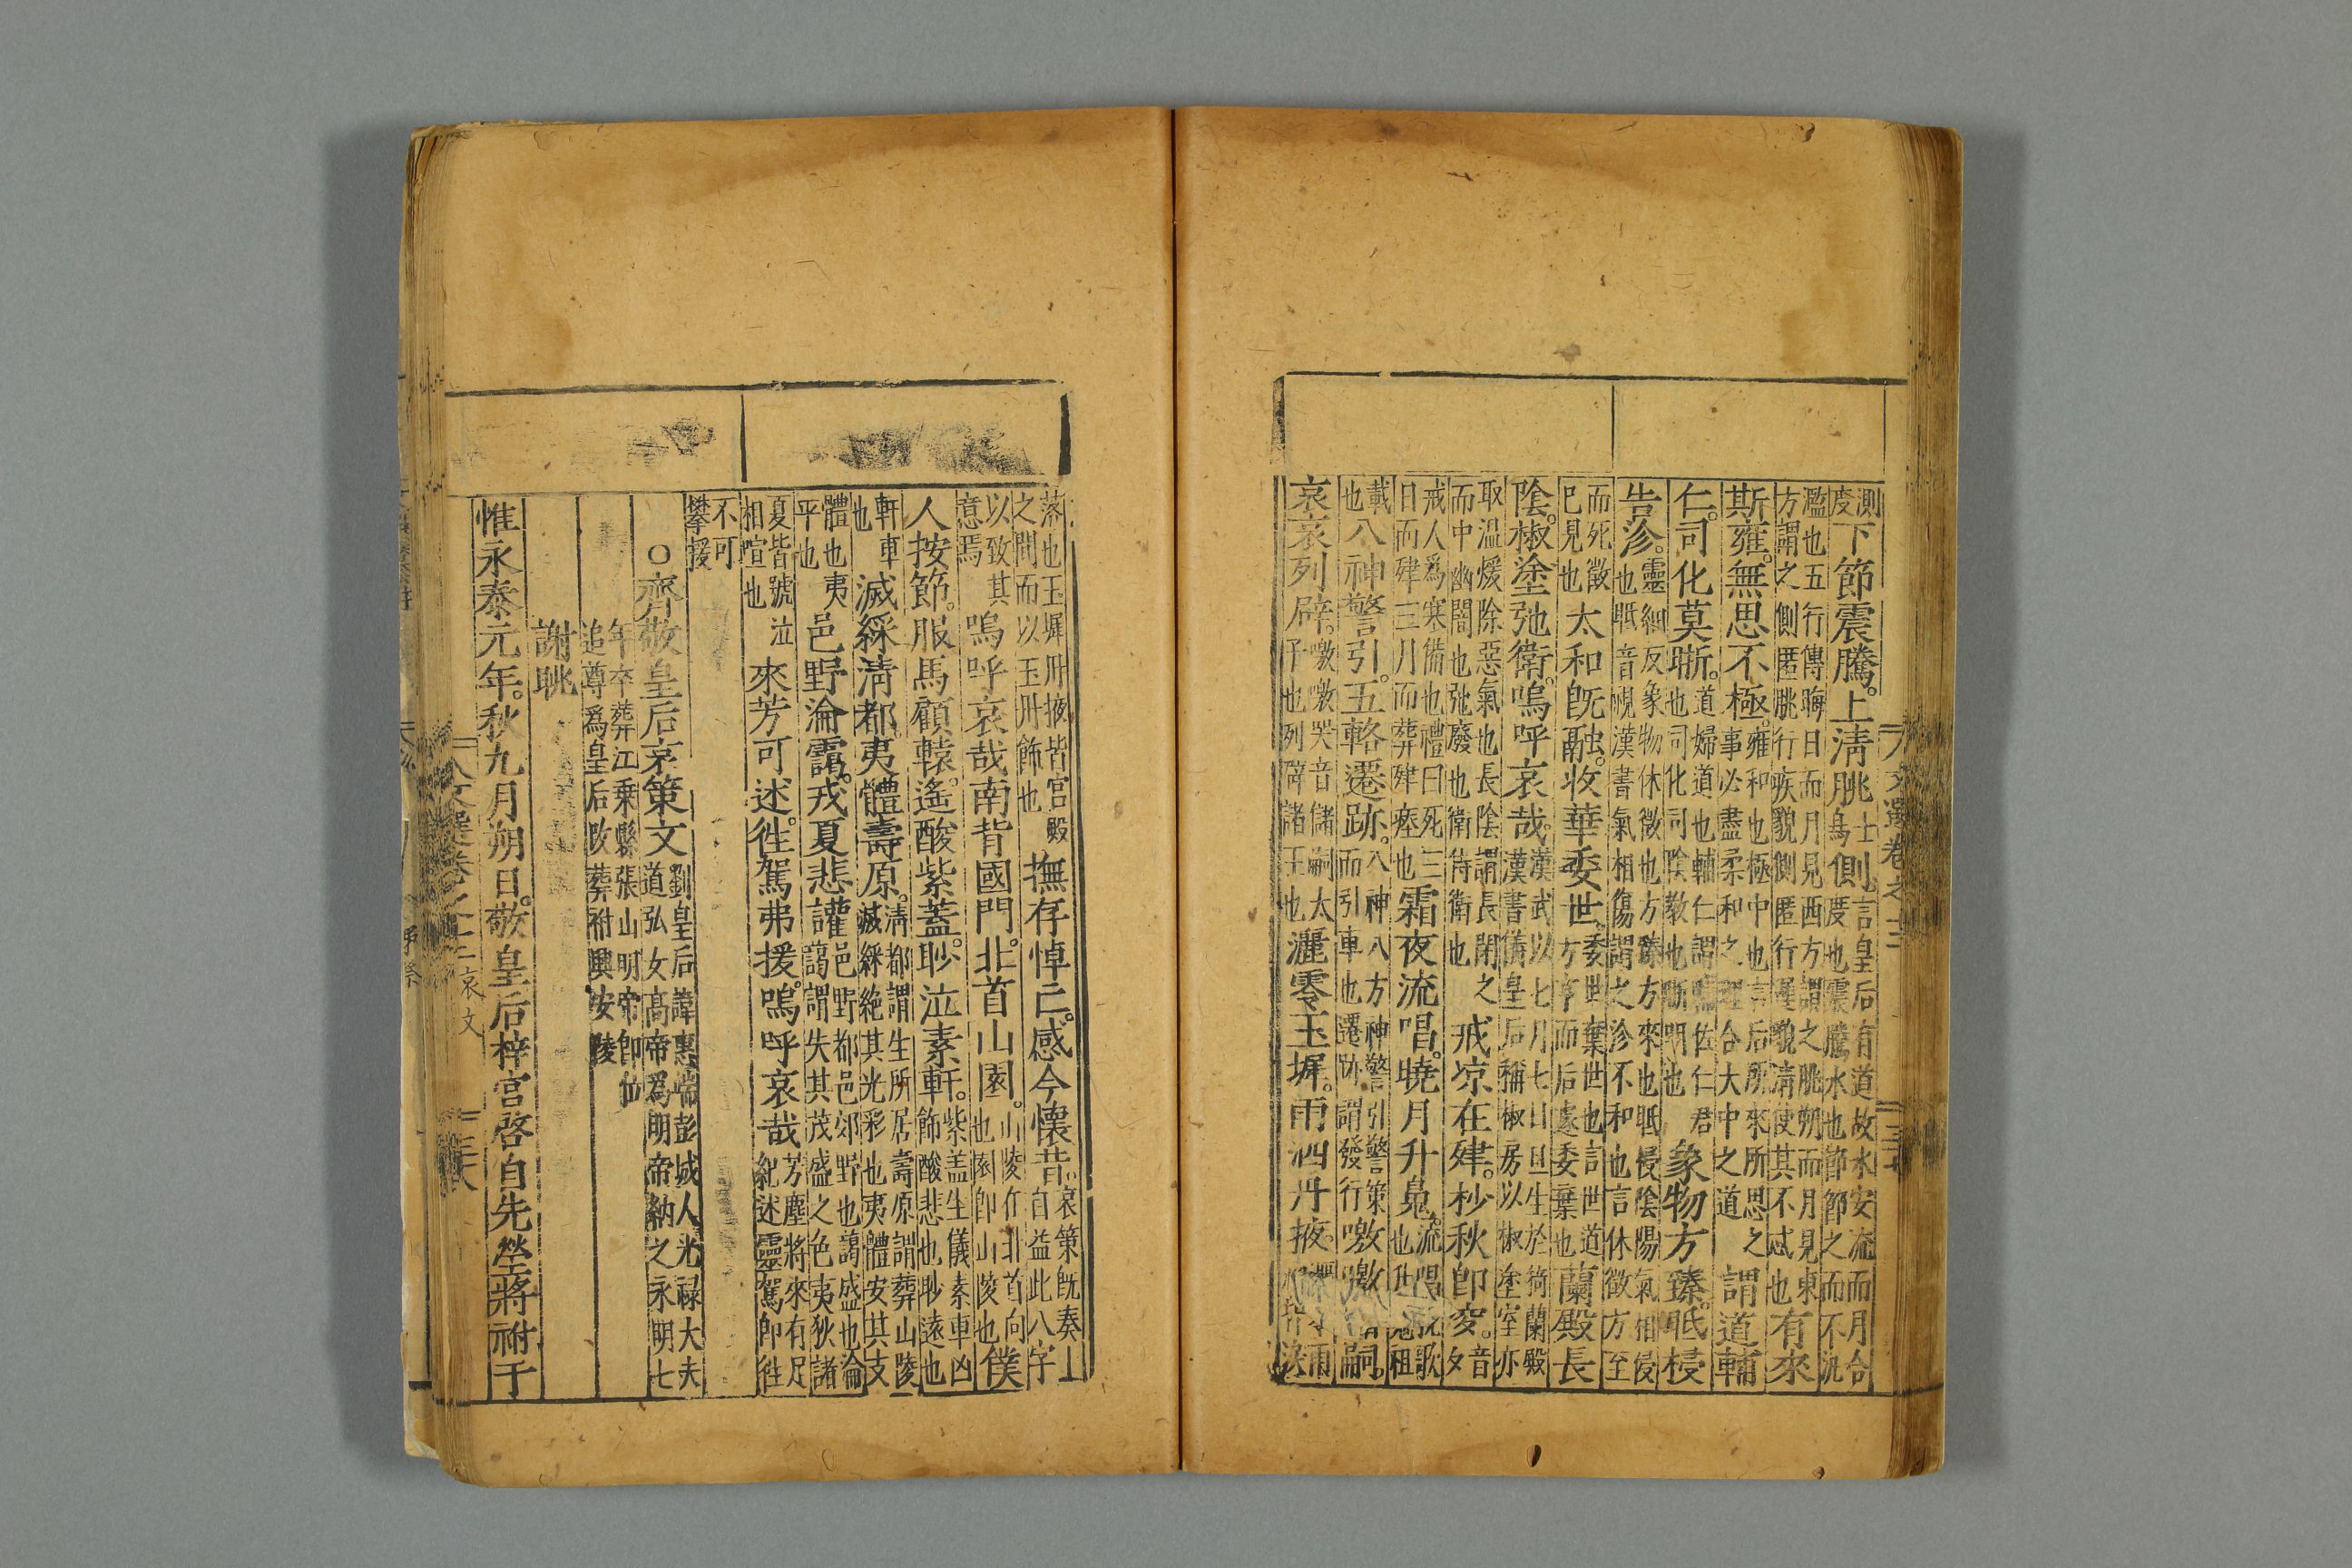 文選卷之十二
測度下節震騰。上清朓側言皇后有道故水安流而月合度也震騰水也節節之而不沉
濫也五行傳晦日而月見西方謂之朓朔而月見東方謂之側匿朓行疾貌側匿行遲貌清使其不忒也有來
斯雍。無思不極。雍和也極中也言后所來所思之事必盡柔和之理合大中之道謂道輔
仁。司化莫晣。道婦道也輔仁謂佐仁君也司化司陰教也晣明也象物方臻。眡祲
告沴。靈細反象物休徵也方臻方來也眡祲陰陽氣相侵也眡音視漢書氣相傷謂之沴不和也言休徵方至
而死徵已見也太和旣融。收華委世。委世棄世也言世道方亨而后遽委棄也蘭殿長
陰。椒塗弛衛。嗚呼哀哉。漢武以七月七日旦生於猗蘭殿漢書儀皇后稱椒房以椒塗室亦
取溫煖除惡氣也長陰謂長閉之而中幽闇也弛廢也衛侍衛也戒凉在肂。杪秋即穸。音夕
戒人爲寒備也禮曰死三日而肂三月而葬肂瘞也霜夜流唱。曉月升魄。流唱挽歌也祖
載也八神警引。五輅遷跡。八神八方神警引警策而引車也遷跡謂發行噭噭儲嗣。
哀哀列辟。噭噭哭音儲嗣太子也列辟諸王也灑零玉墀。雨泗丹掖。
落也玉墀丹掖皆宮殿之間而以玉丹飾也撫存悼亡。感今懷昔。哀策旣奏上自益此八字
以致其意焉嗚呼哀哉南背國門。北首山園。山陵在北首向也園卽山陵也僕
人按節。服馬顧轅。遙酸紫蓋。眇泣素軒。紫盖生儀素車凶飾酸悲也眇遠也
軒車也滅綵淸都。夷體壽原。淸都謂生所居壽原謂葬山陵滅綵絶其光彩也夷體安其支
體也夷平也邑野淪靄。戎夏悲讙邑野都邑郊野也靄盛也淪靄謂失其茂盛之色夷狄諸
夏皆號泣相喧也來芳可述。徃駕弗援。嗚呼哀哉芳塵將來有足紀述靈駕卽徃
不可攀援
○齊敬皇后哀策文劉皇后諱惠端彭城人光祿大夫道弘女高帝爲明帝納之永明七
年卒葬江乗縣張山明帝卽位追尊爲皇后改葬祔興安陵
謝朓
惟永泰元年。秋九月朔日。敬皇后梓宮啓自先塋將祔于
文選卷之十二哀文